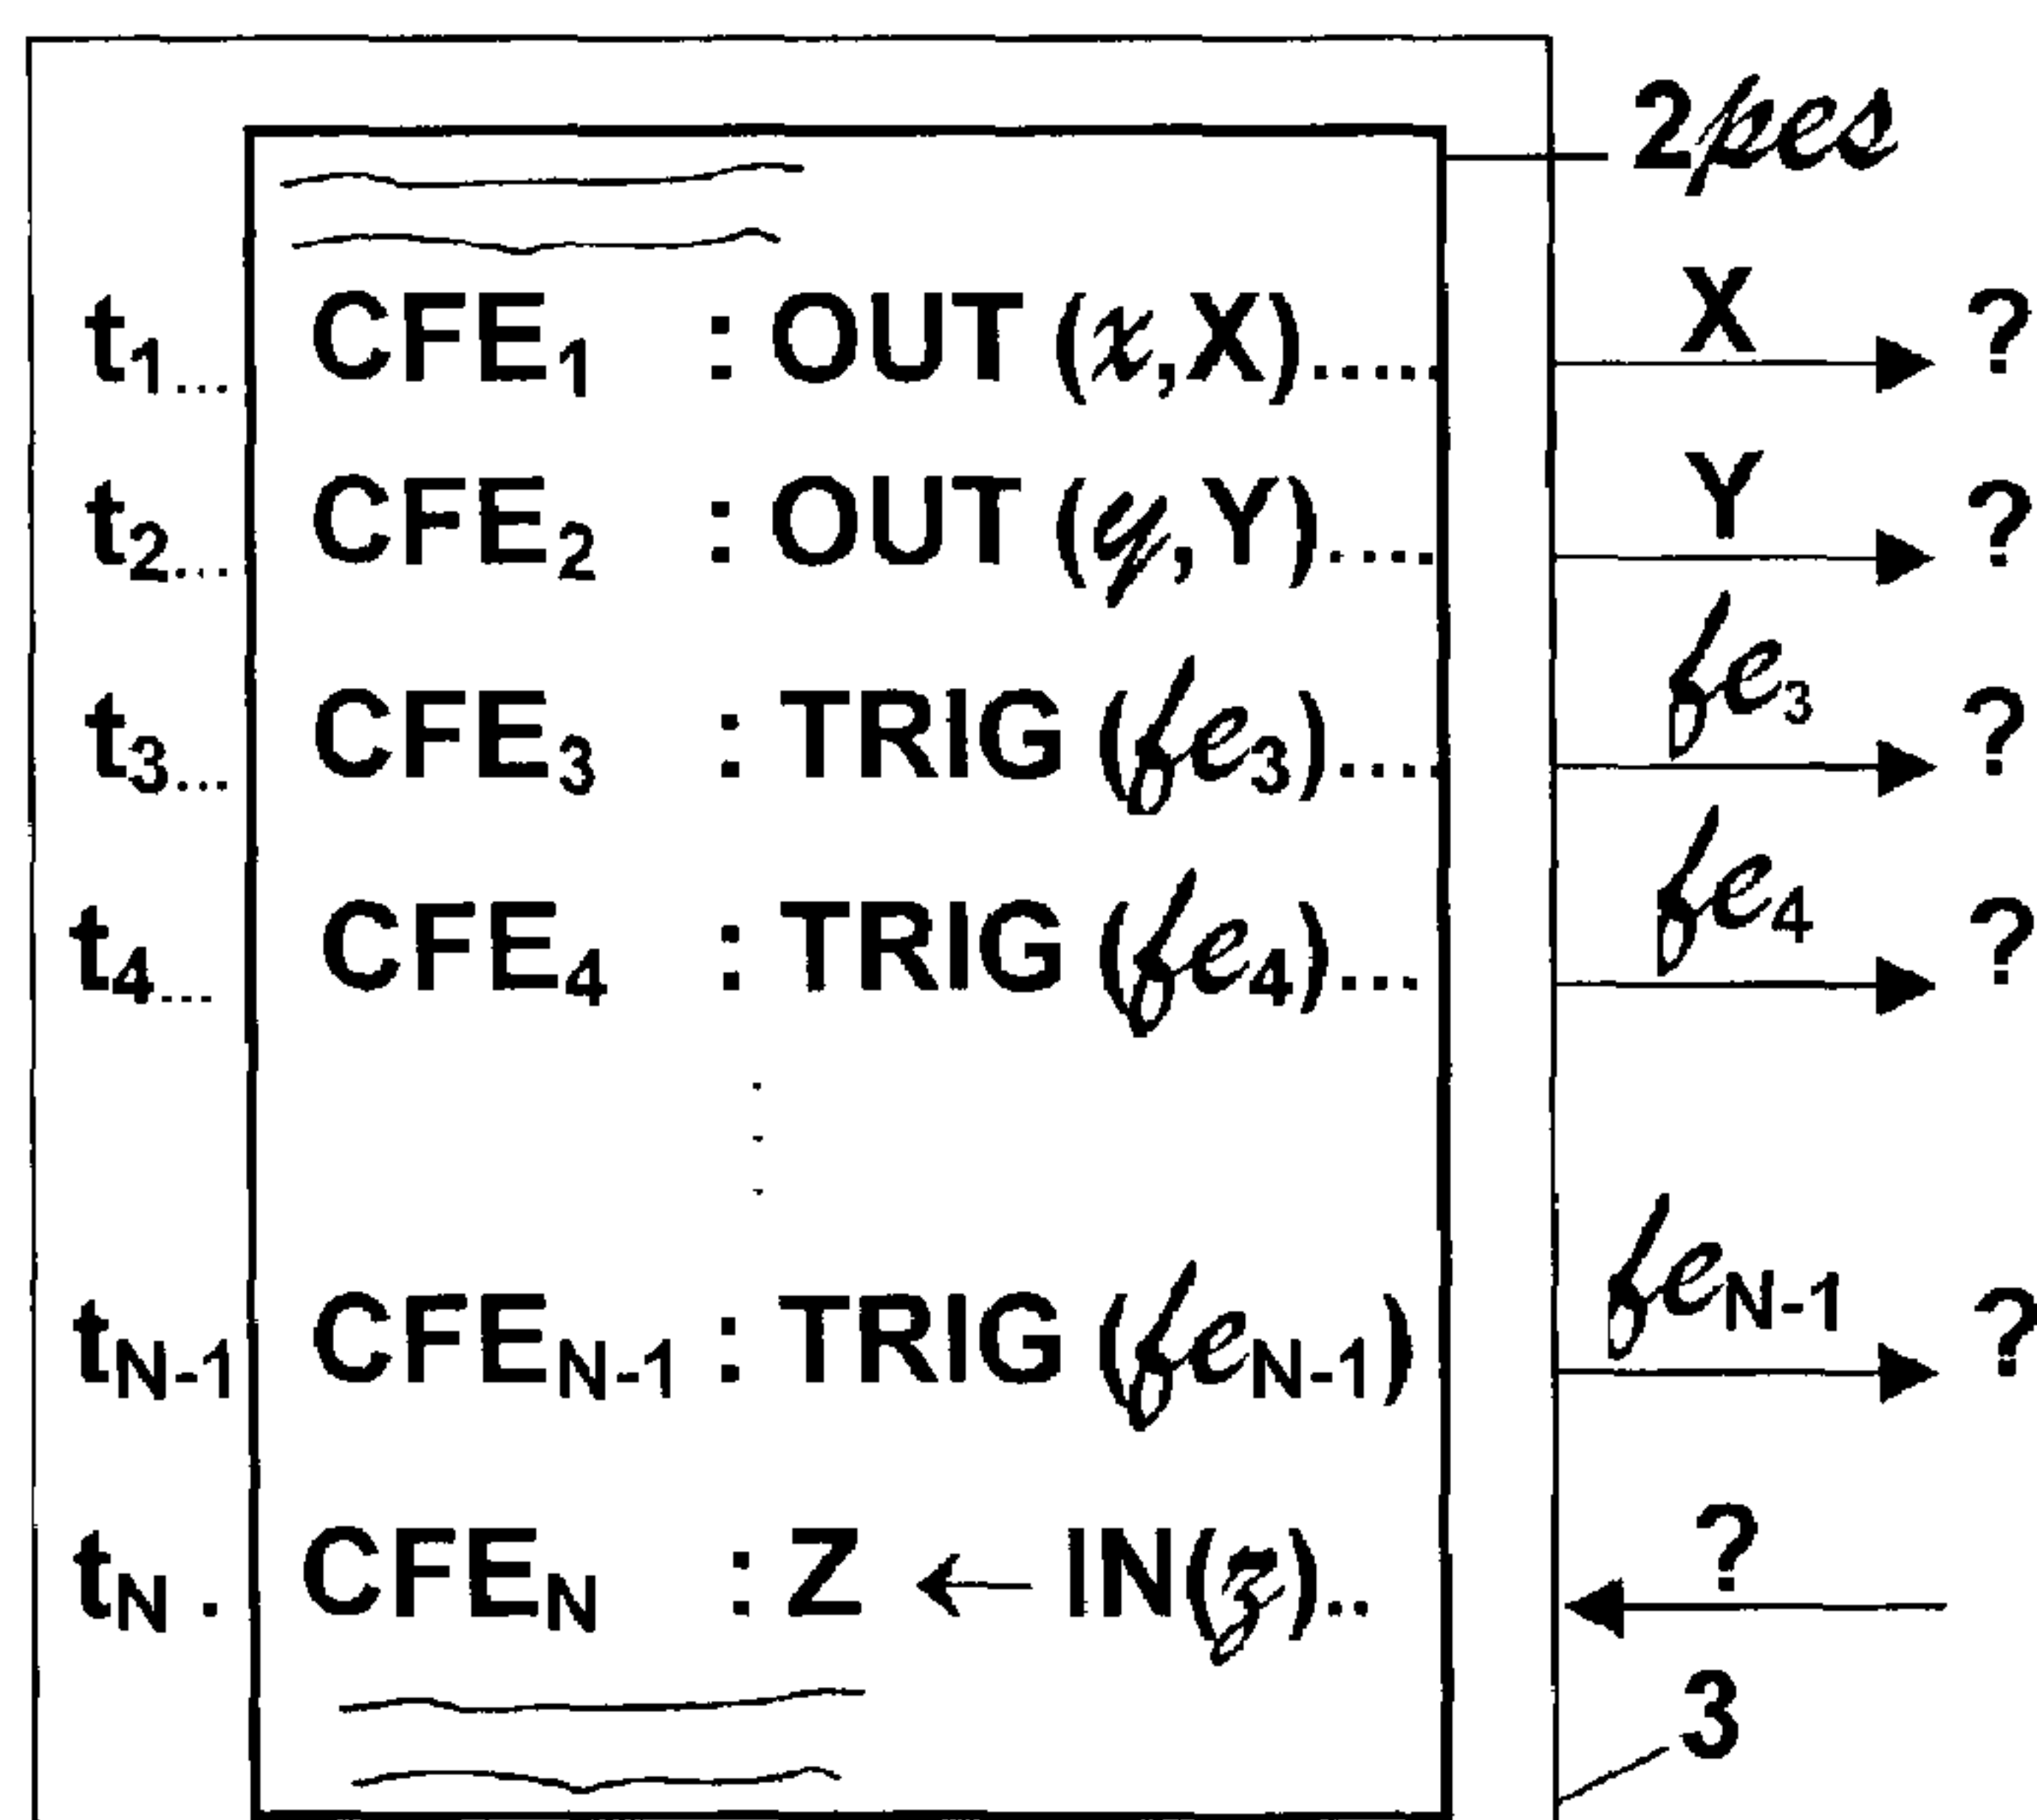 2pes
X
t1... CFE1 : OUT (x,X)..... ?
Y
t2... CFE2 : OUT (y,Y).... ?
fe3
t3... CFE3 : TRIG (fe3).... ?
fe4
t4... CFE4 : TRIG (fe4)... ?
feN-1
tN-1 CFEN-1 : TRIG (feN-1) ?
?
tN . CFEN : Z ← IN(z)..
3